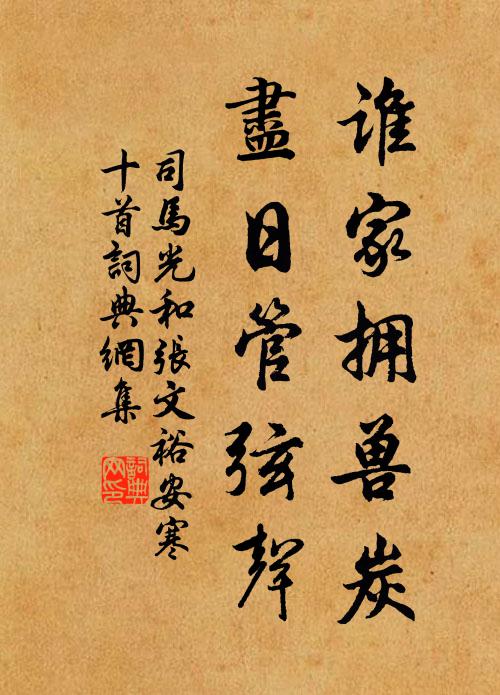 谁家拥兽炭
盡日管弦聲
司馬光和張文裕安寒
十首詞典網集
詞典网印